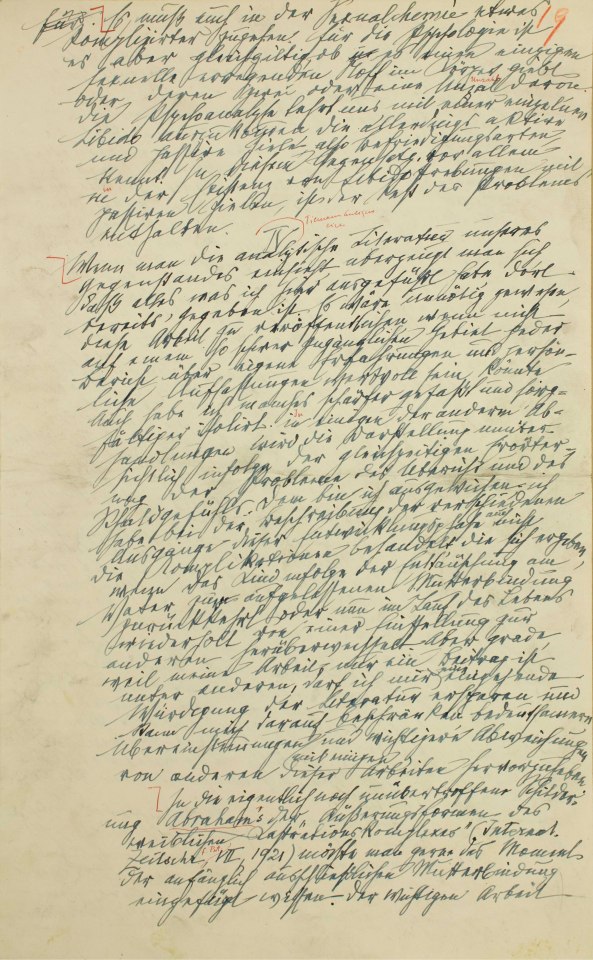 19
für. Es muß auch in der Sexualchemie etwas
komplizirter zugehen. für die Psychologie ist
es aber gleichgiltig, ob es einen einzigen
sexuelle erregenden Stoff im Körper giebt
oder deren zwei oder eine Unzal davon.
die Psychoanalyse lehrt uns mit einer einzelnen
Libido auszukommen die allerdings aktive
und passive Ziele, also Befriedigungsarten
kennt. In diesem Gegensatz, vor allem
in der Existenz von Libidostrebungen mit
passiven Zielen, ist der Rest des Problems
enthalten.
IV
Wenn man die analytische Literatur unseres
Gegenstandes einsieht überzeugt man sich
daß alles was ich hier ausgeführt habe dort
bereits gegeben ist. Es wäre unnötig gewesen,
diese Arbeit zu veröffentlichen wenn nicht
auf einem so schwer zugänglichen Gebiet jeder
Bericht über eigene Erfahrungen und persön-
liche Auffassungen wertvoll sein könnte
Auch habe ich manches schärfer gefaßt und sorg-
fältiger isolirt. in einigen der anderen Ab-
handlungen wird die Darstellung unüber-
sichtlich infolge der gleichzeitigen Erörter-
ung der Probleme des Überichs und des
Schuldgefühls. Dem bin ich ausgewichen, ich
habe bei der Beschreibung der verschiedenen
Ausgänge dieser Entwicklungsphase auch nicht
die Komplikationen behandelt die sich ergeben,
wenn das Kind infolge der Enttäuschung am
Vater zur aufgelassenen Mutterbindung
zurückkehrt oder nun im Lauf des Lebens
wiederholt von einer Einstellung zur
anderen herüberwechselt. Aber grade
weil meine Arbeit nur ein Beitrag ist
unter anderen, darf ich mir eine eingehende
Würdigung der Literatur ersparen und
kann mich darauf beschränken bedeutsamere
Übereinstimmungen mit einigen und wichtigere Abweichungen
von anderen dieser Arbeiten hervorzuheben.
In die eigentlich noch unübertroffene Schilder-
ung Abraham's der „Äußerungsformen des
weiblichen Kastrationskomplexes" (Internat.
Zeitschr. VII, 1921) möchte man gerne das Moment
der anfänglich ausschließlichen Mutterbindung
eingefügt wissen. der wichtigen Arbeit